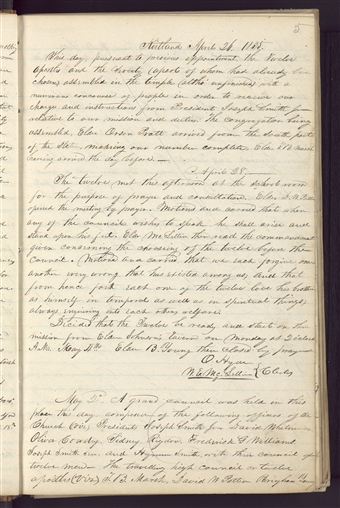 5
Kirtland April 26, 1835.
This day, pursuant to previous appointment, the Twelve
Apostles and the Seventy (a part of whom had already been
chosen) assembled in the temple (altho unfinished) with a
numerous concourse of people in order to receive our
charge and instructions from President Joseph Smith Jr
relative to our mission and duties. The congregation being
assembled, Elder Orson Pratt arrived from the south part
of the State, making our number complete, Elder T. B. Marsh
having arrived the day before.—
April 28.
The twelve met this afternoon at the school room
for the purpose of prayer and consultation. Elder D. W. Patten
opened the meeting by prayer. Motioned and carried that when
any of the council wishes to speak, he shall arise and
stand upon his feet. Elder McLellin then read the commandment
given concerning the choosing of the twelve before the
Council. Motioned and carried, that we each forgive one
another every wrong that has existed among us, and that
from hence forth each one of the twelve love his brother
as himself in temporal as well as in spiritual things,
always enquiring into each others welfare.
Decided that the Twelve be ready and start on their
mission from Elder Johnson's tavern on Monday at 2 o'clock
A.M. May 4th. Elder B. Young then closed by prayer
O. Hyde
W. E. McLellin } Clerks
May 2d A grand council was held in this
place this day, composed of the following officers of the
Church (viz.) Presidents Joseph Smith Jur David Whitmer
Oliver Cowdery, Sidney Rigdon Frederick G. Williams
Joseph Smith sen and Hyrum Smith, with their council of
twelve men— The traveling high council or twelve
apostles (viz.) T. B. Marsh, David W. Patten Brigham